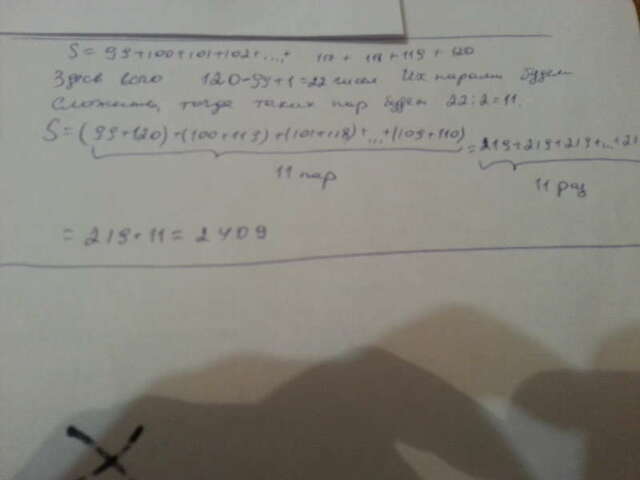 S = 99+100+101+102+...+ 117 + 118 + 119 + 120
Здесь всего 120-99+1=22 чисел Их парами будем
сложить, тогда таких пар будет 22:2=11.
S=(99+120)+(100+119)+(101+118)+...+(109+110)=219+219+219+...+21
11 пар
11 раз
= 219·11 = 2409